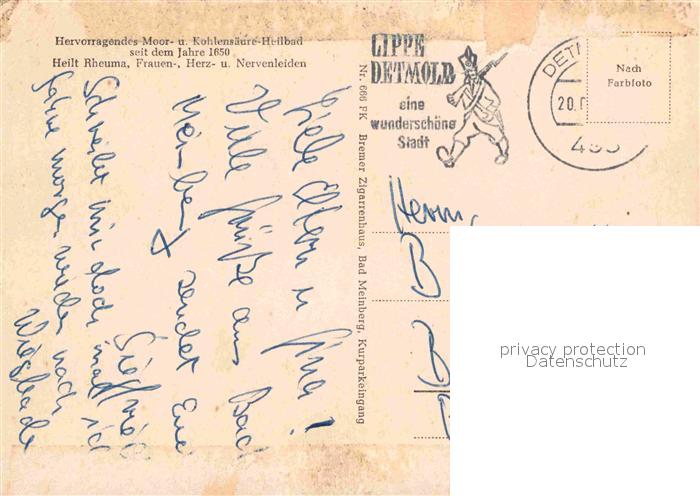 Hervorragendes Moor- u. Kohlensäure-Heilbad
seit dem Jahre 1650
Heilt Rheuma, Frauen-, Herz- u. Nervenleiden
LIPPE
DETMOLD
eine
wunderschöne
Stadt
DETM
20.
Nach
Farbfoto
Nr. 666 FK Bremer Zigarrenhaus, Bad Meinberg, Kurparkeingang
Liebe Eltern u
Viele Grüße aus Bad
Meinberg sendet Euch
Siegfried
Schreibt mir doch mal ich
fahre morgen wieder nach
Herrn
privacy protection
Datenschutz